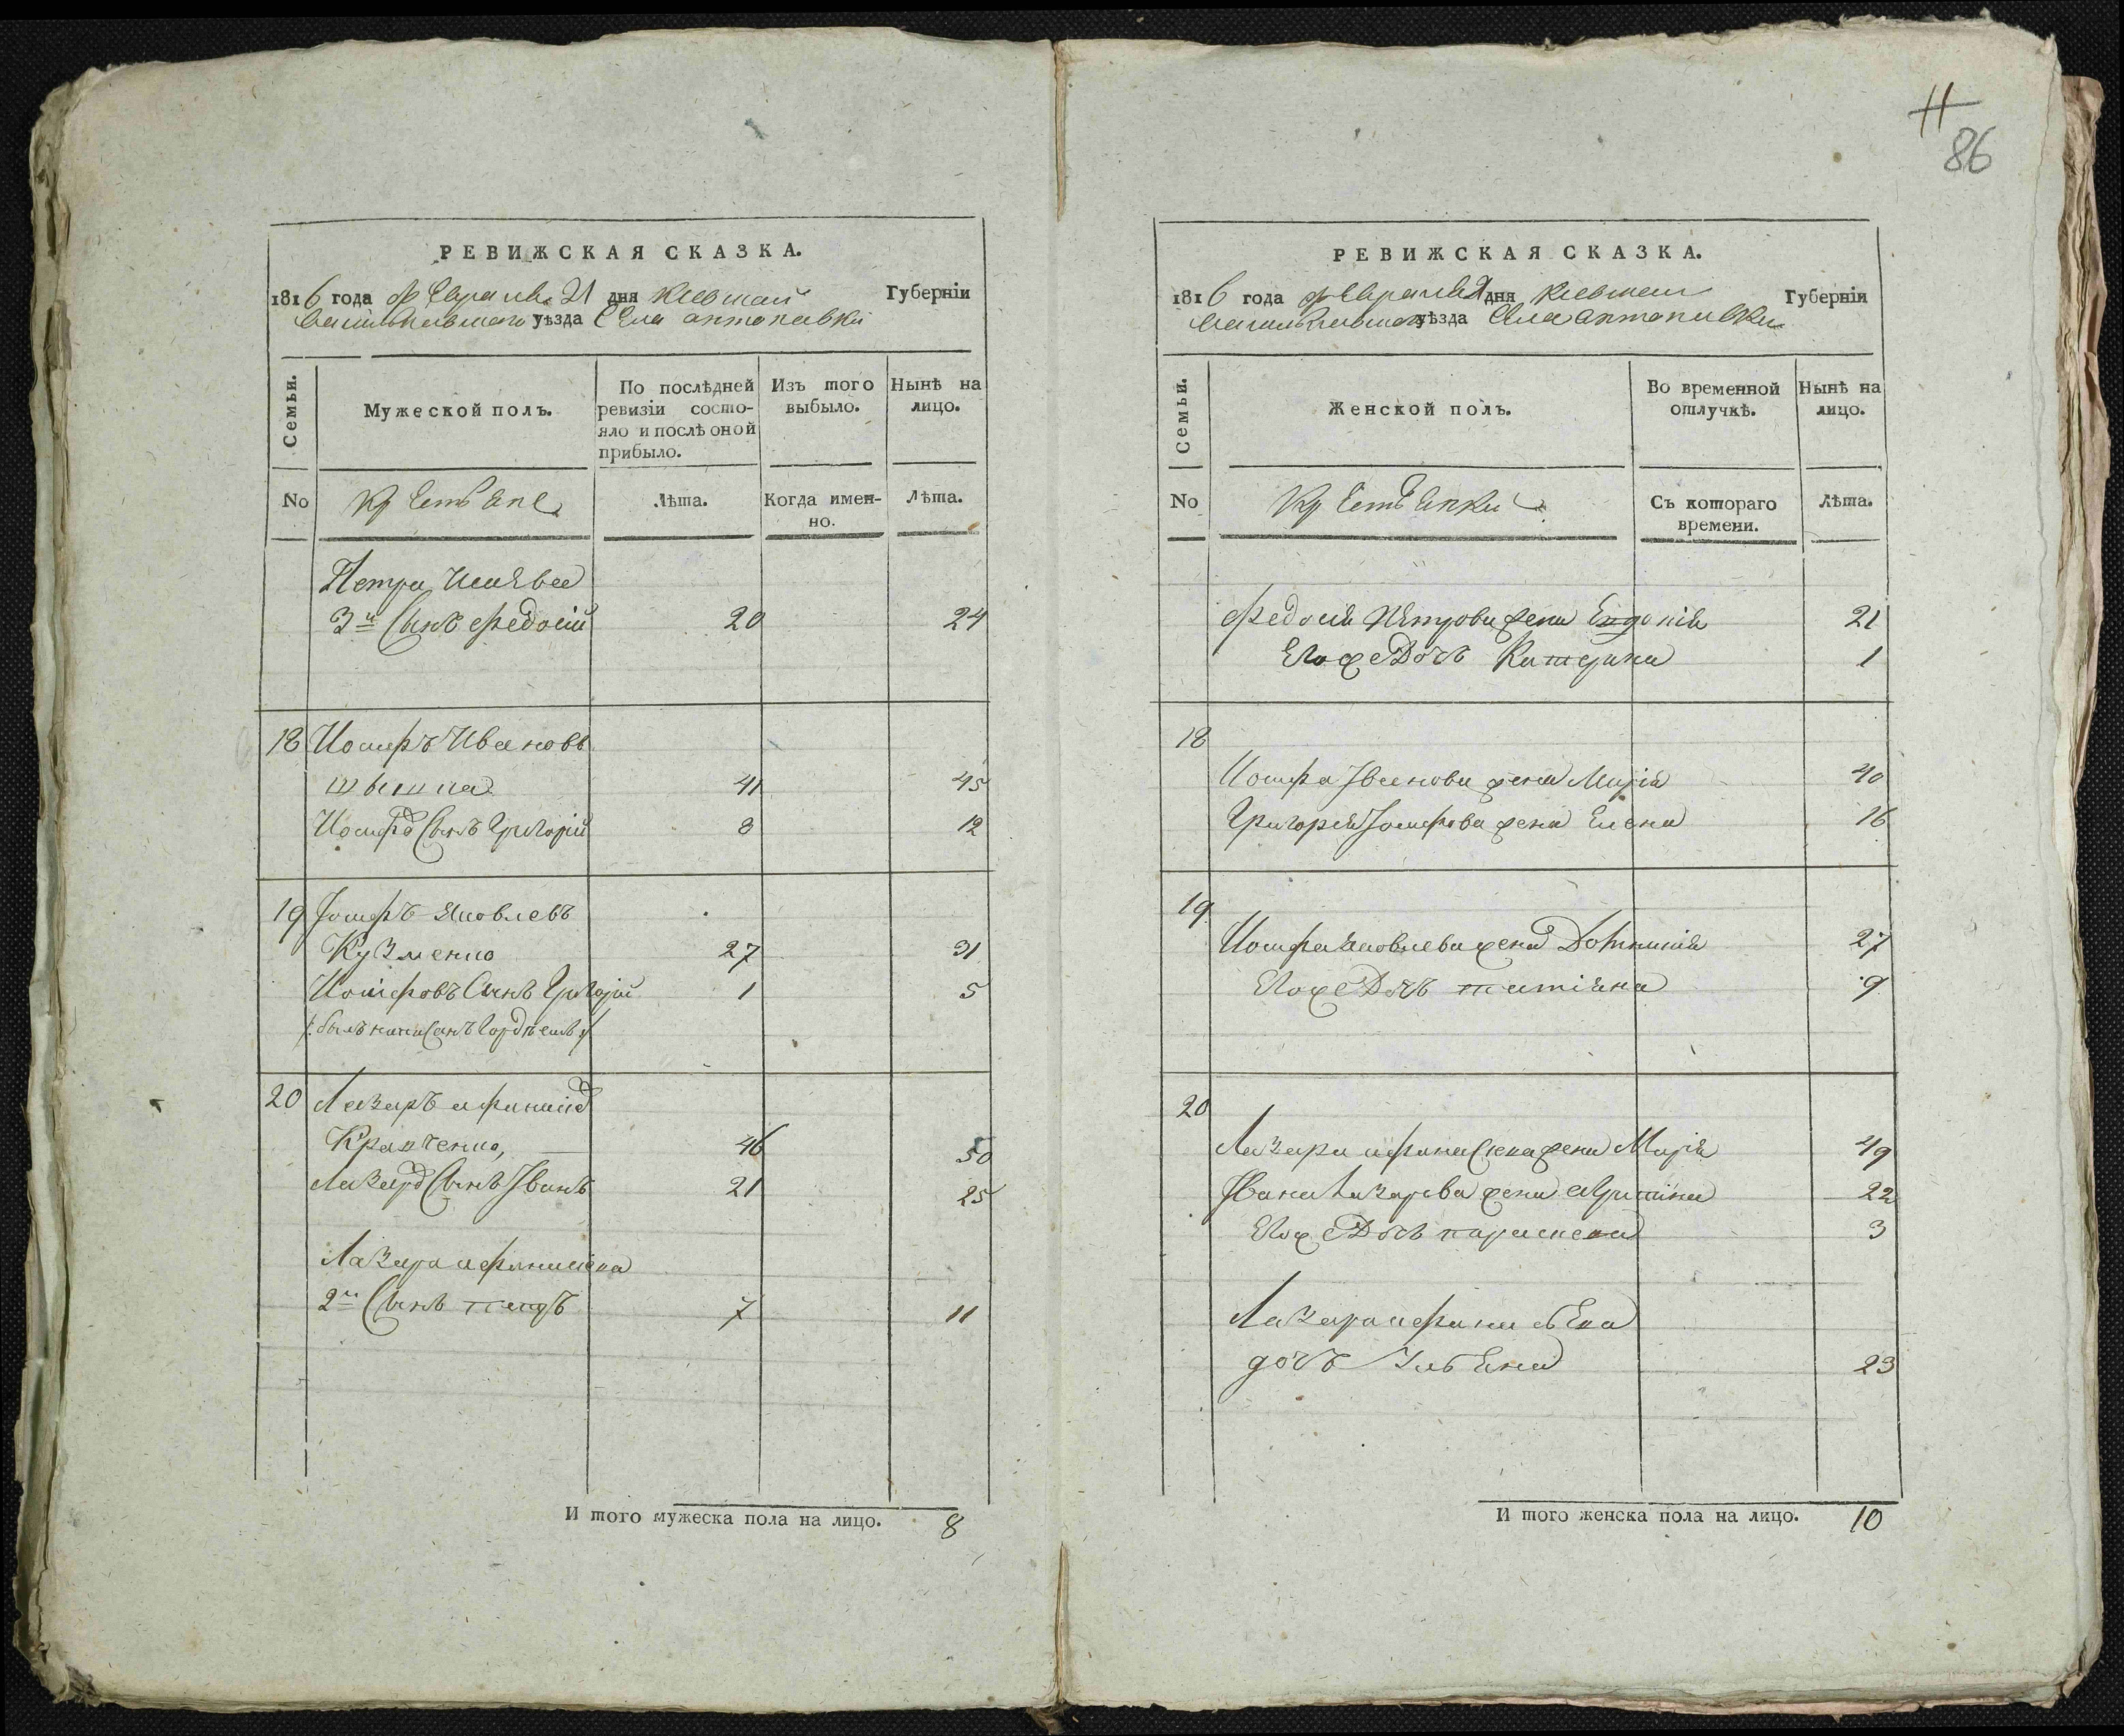 РЕВИЖСКАЯ СКАЗКА.
1816 года февраля 21 дня Киевской Губерніи
Васильковскаго уѣзда Села антоновки
Семьи.
Мужеской полъ.
По послѣдней ревизіи состояло и послѣ оной прибыло.
Изъ того выбыло.
Нынѣ на лицо.
No
Крестьяне
Лѣта.
Когда именно.
Лѣта.
Петра
3й Сынъ Федосій 20 24
18 Иосифъ Ивановъ
41 45
Иосифа Сынъ Григорій 8 12
19 Іосифъ Яковлевъ
Кузменко 27 31
Иосифовъ Сынъ Григорій 1 5
/: былъ написанъ :/
20 Лазаръ афанасіев
Кравченко, 46 50
Лазара Сынъ Іванъ 21 25
Лазара афанасіева
2й Сынъ 7 11
И того мужеска пола на лицо. 8
11
86
РЕВИЖСКАЯ СКАЗКА.
1816 года февраля 21 дня Киевской Губерніи
Васильковскаго уѣзда Села антоновки
Семьи.
Женской полъ.
Во временной отлучкѣ.
Нынѣ на лицо.
No
Крестьянки
Съ котораго времени.
Лѣта.
Федосія Петрова жена Евдокія 21
Егоже Дочъ Катерина 1
18
Иосифа Іванова жена Марія 40
Григорія Іосифова жена Елена 16
19
Иосифа Яковлева жена Домникія 27
Егоже Дочъ татіяна 9
20
Лазара афанасиева жена Марія 49
Івана Лазарева жена 22
Егоже Дочъ параскева 3
Лазара афанасьева
дочъ Ульяна 23
И того женска пола на лицо. 10